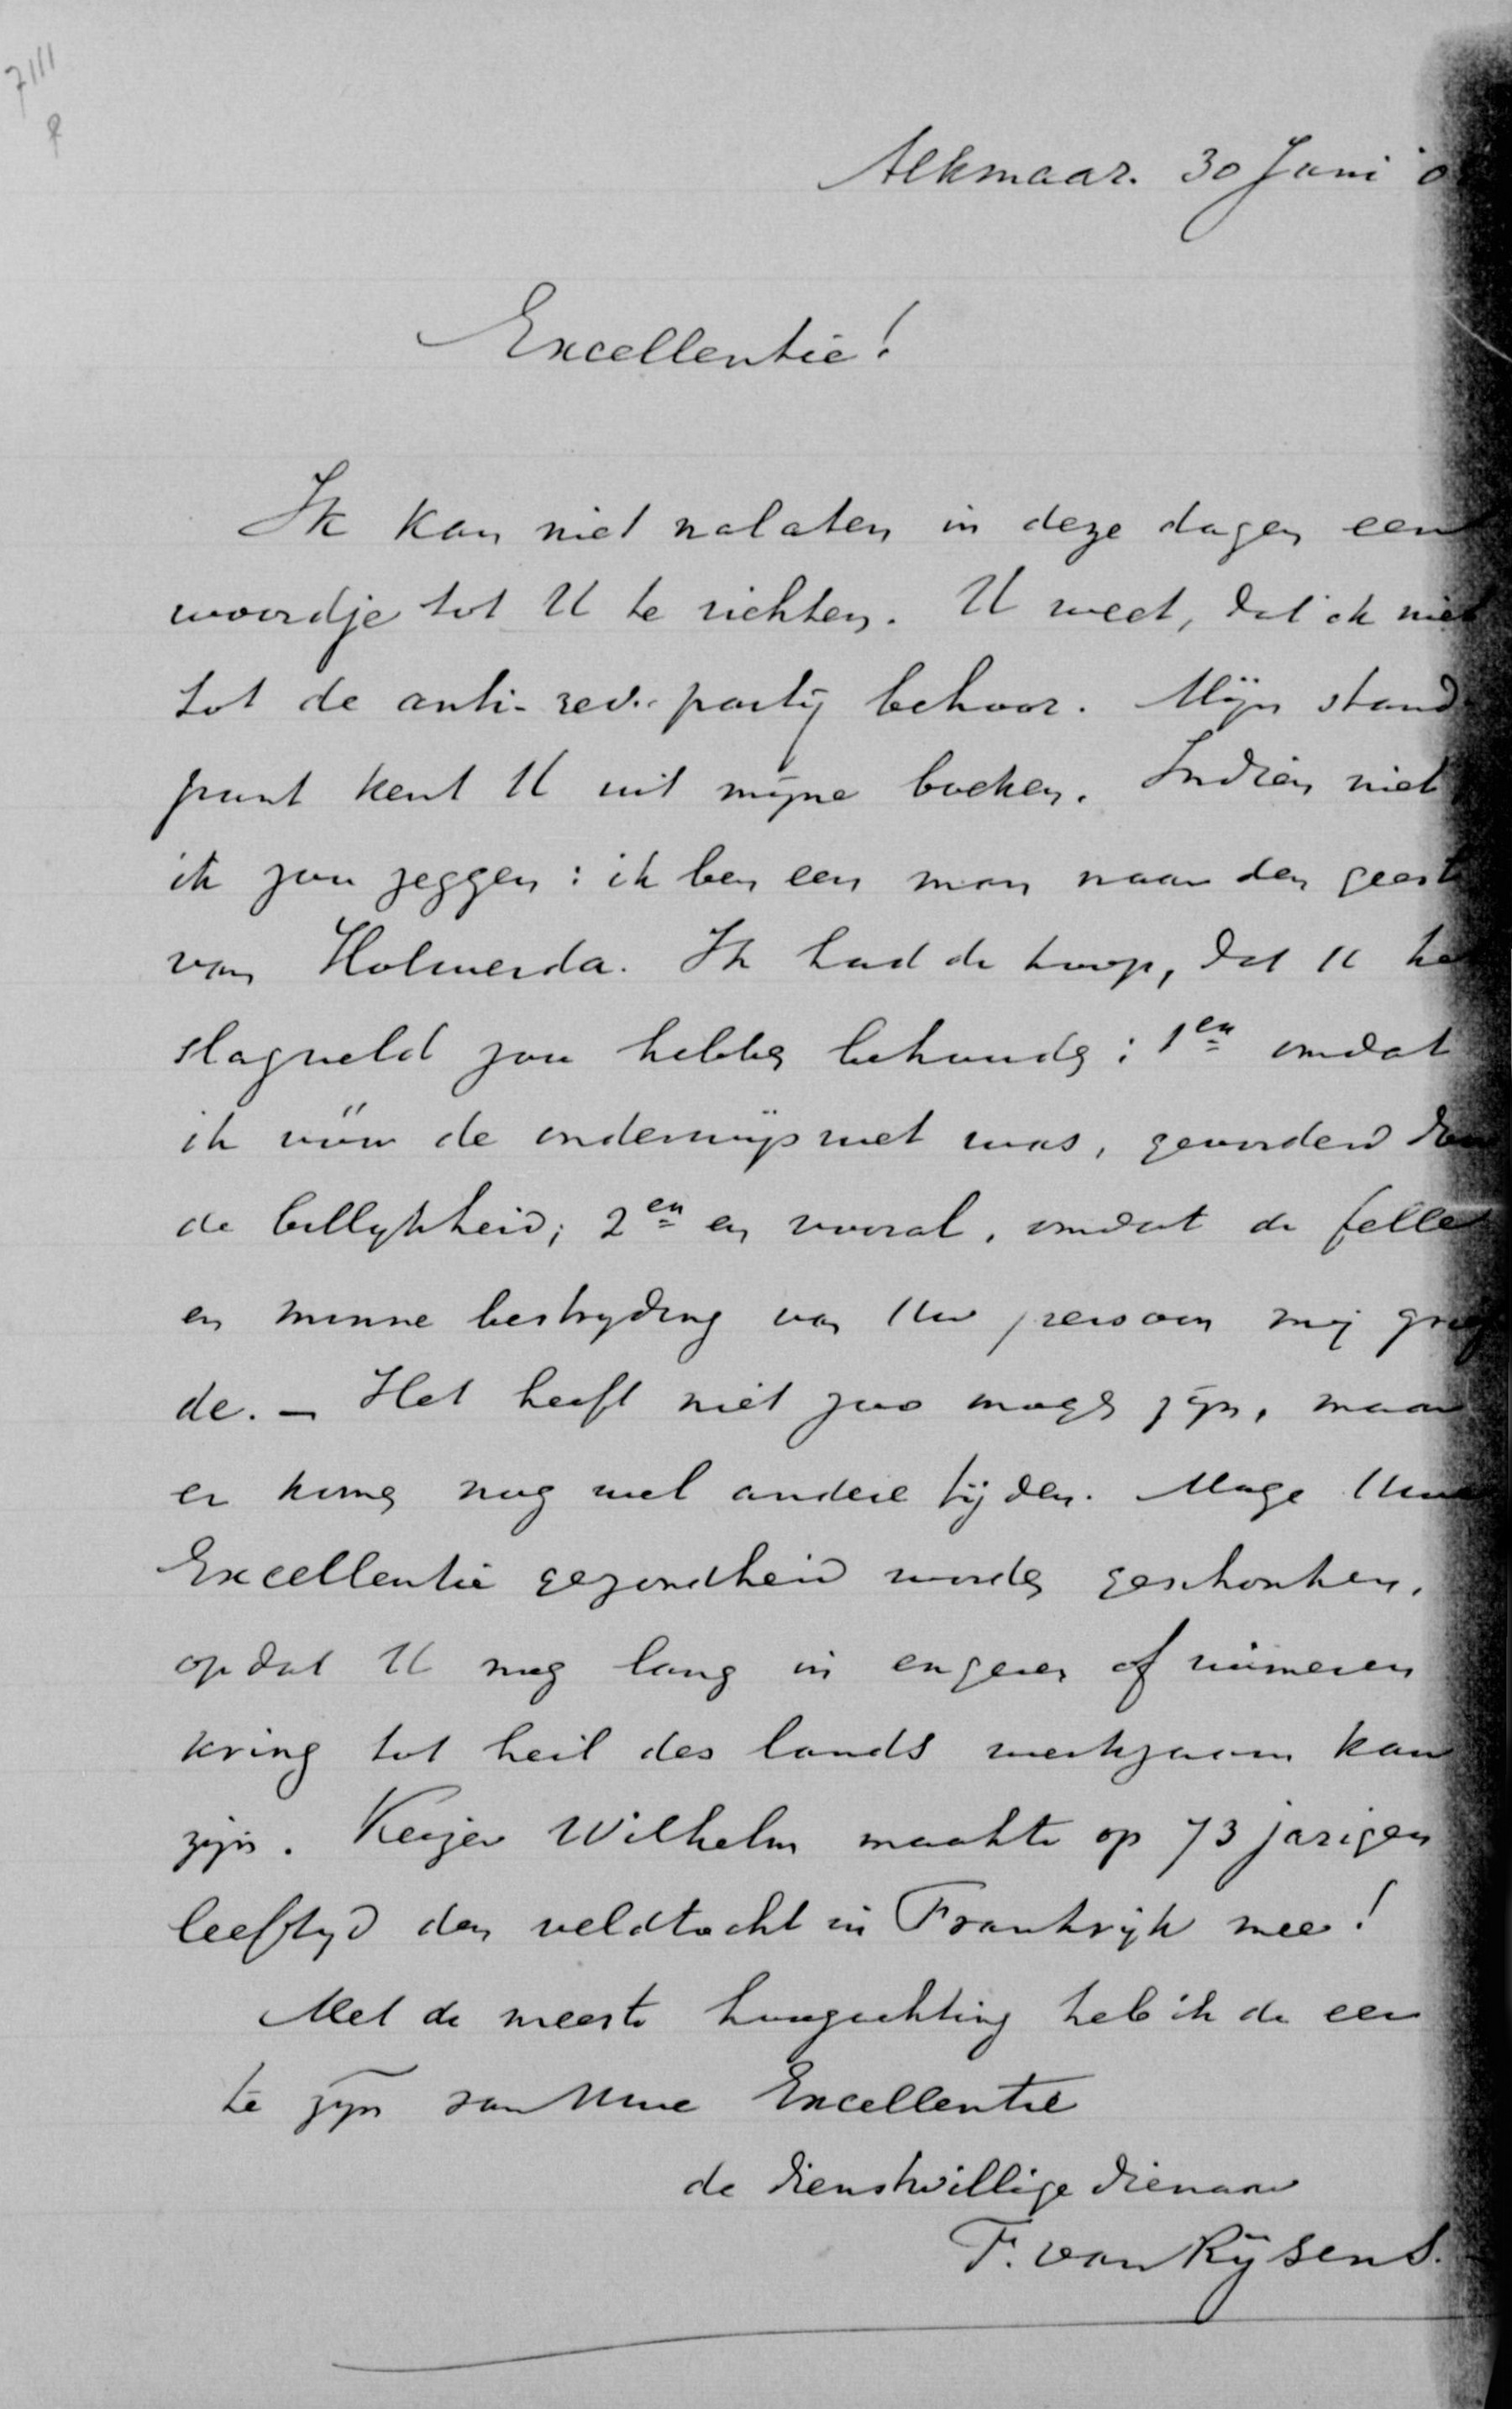 7111
Alkmaar. 30 Juni '0
Excellentie!
Ik kan niet nalaten in deze dagen een
woordje tot U te richten. U weet, dat ik niet
tot de anti-rev. partij behoor. Mijn stand-
punt kent U uit mijne boeken. Indien niet
ik zou zeggen: ik ben een man naar den geest
van Holwerda. Ik had de hoop, dat U het
slagveld zou hebben behouden: 1en omdat
ik vóór de onderwijswet was, gevorderd door
de billijkheid; 2en en vooral, omdat de felle
en minne bestrijding van Uw persoon mij
de. – Het heeft niet zoo mogen zijn, maar
er komen nog wel andere tijden. Moge Uwe
Excellentie gezondheid worden geschonken,
opdat U nog lang in engeren of ruimeren
kring tot heil des lands werkzaam kan
zijn. Keizer Wilhelm maakte op 73 jarigen
leeftijd den veldtocht in Frankrijk mee!
Met de meeste hoogachting heb ik de eer
te zijn van Uwe Excellentie
de dienstwillige dienaar
F. van Rijsens.